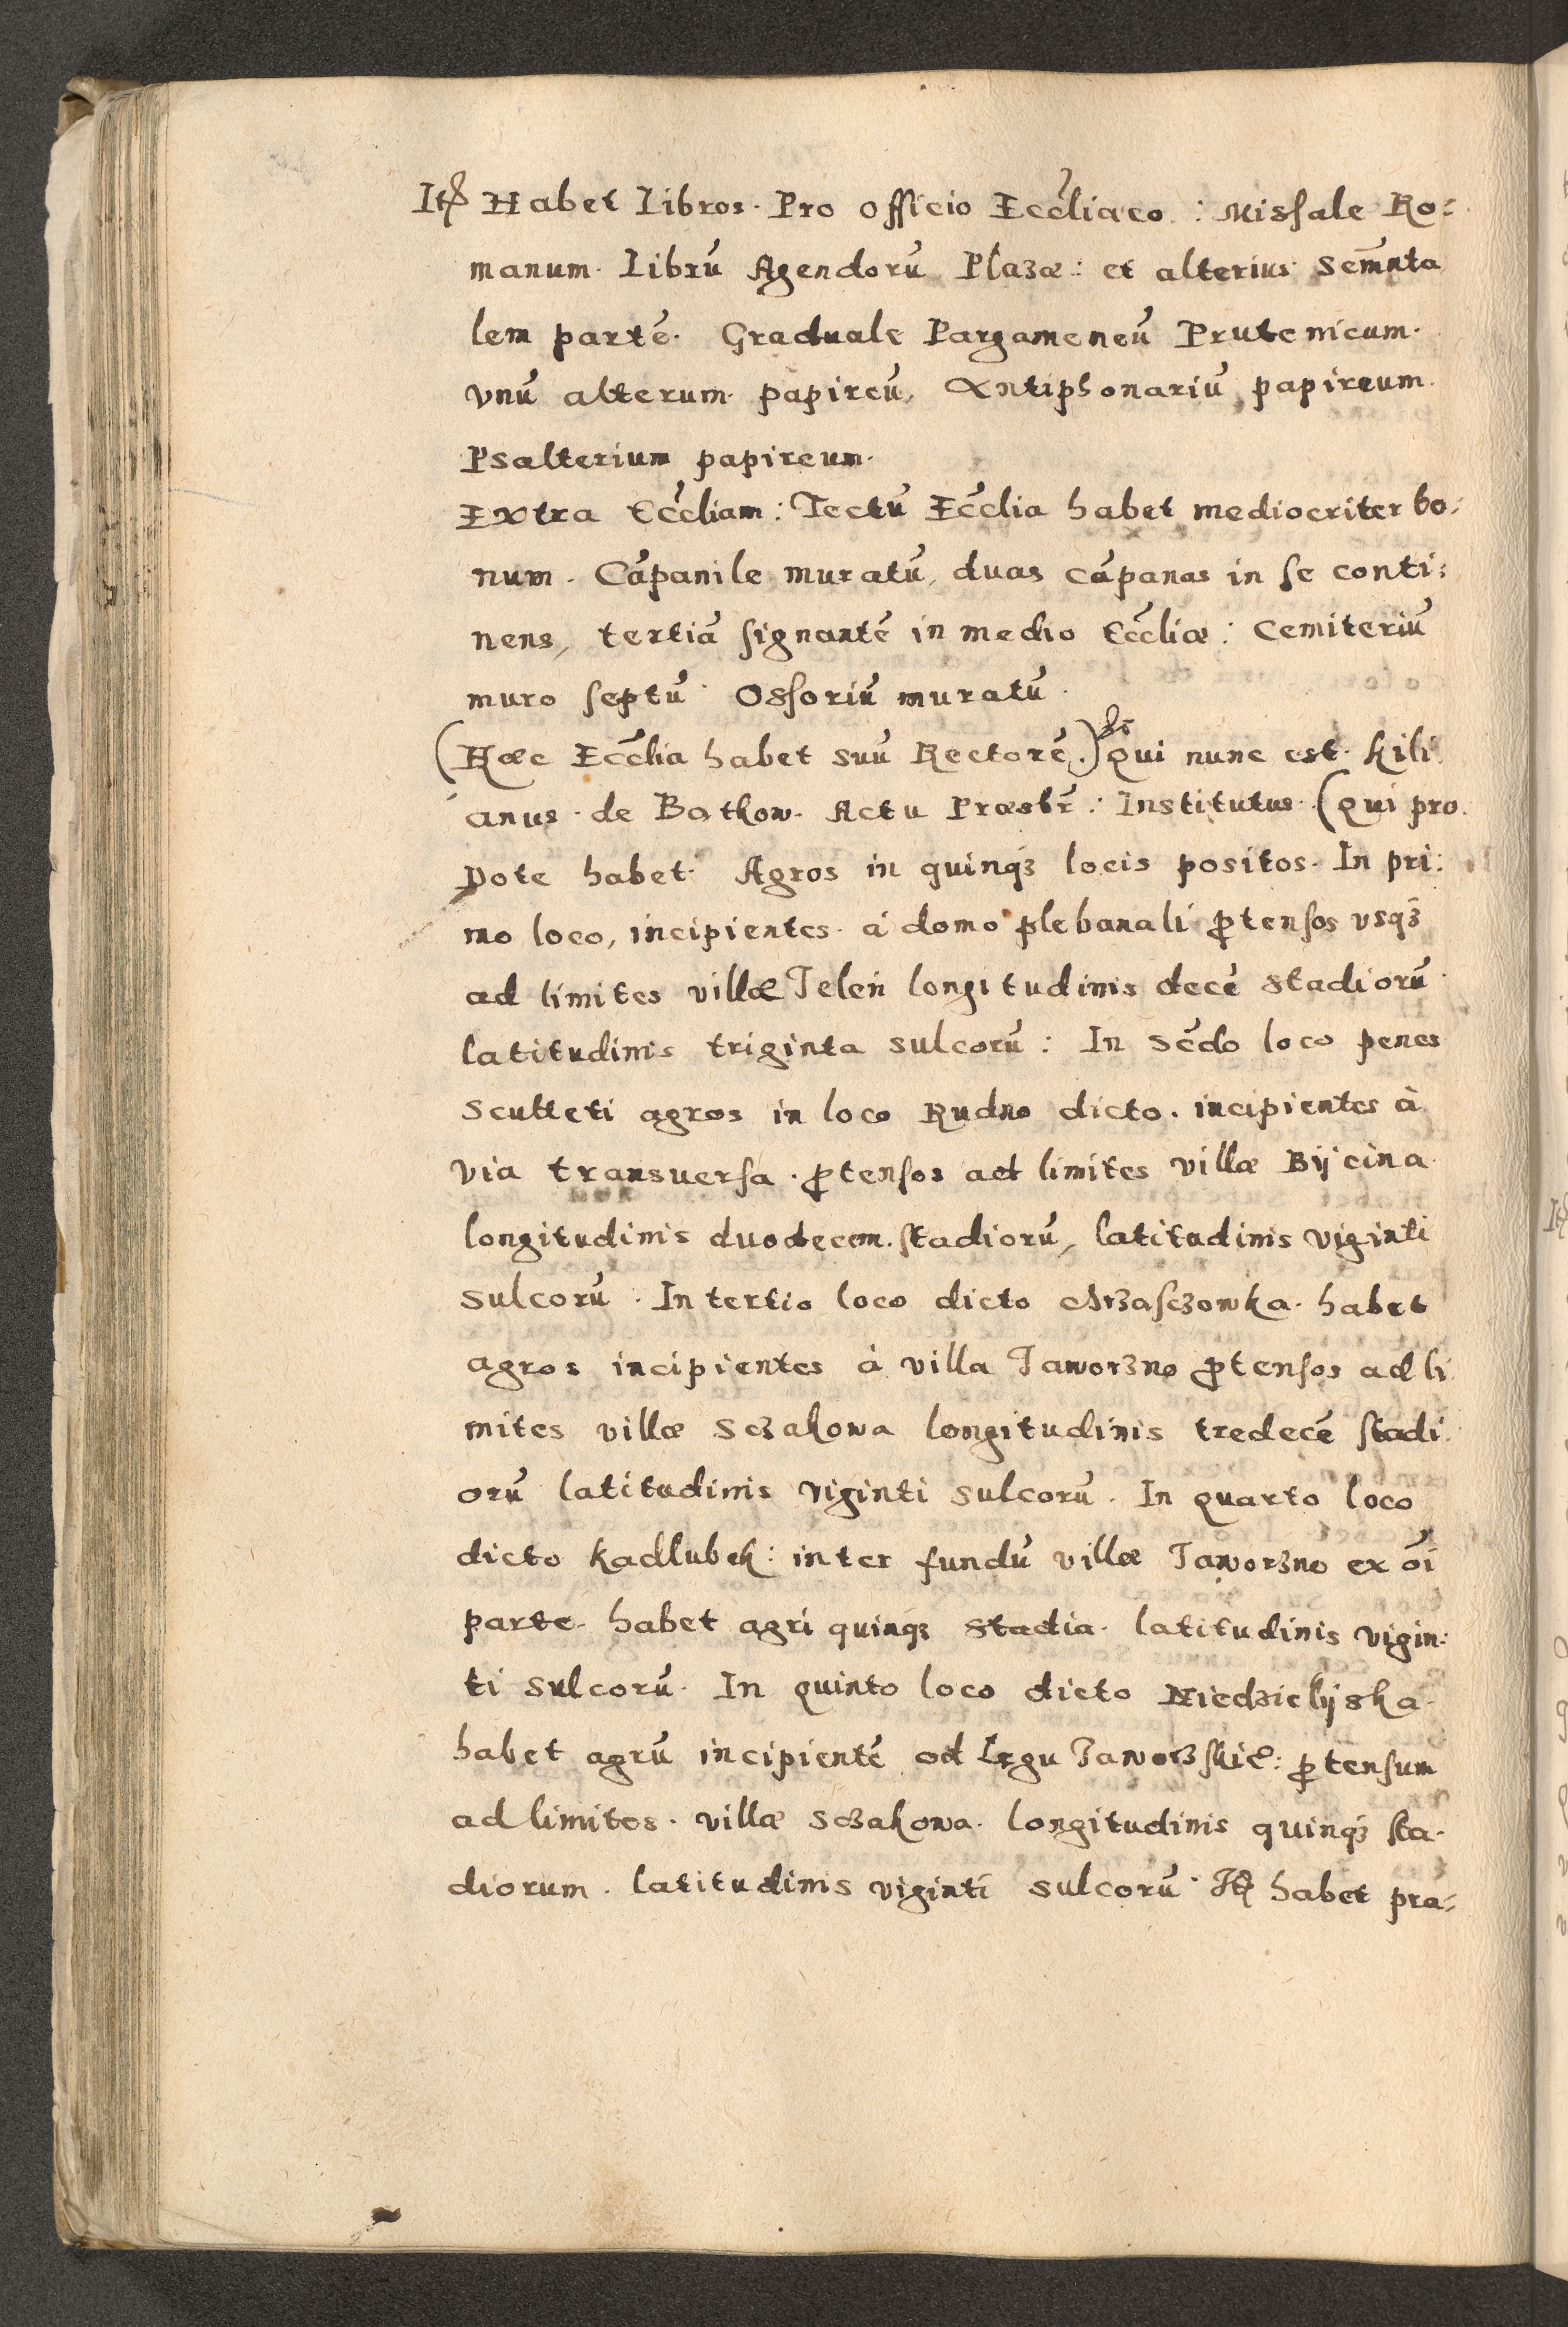 Itē Habet Libros. Pro officio Ecclīiaco: Missale Ro:
manum. Librū Agendorū Plazæ: et alterius Scm̄nta
lem partē. Graduale Pargameneū Prutenicum.
vnū alterum papireū, Antiphonariū papireum.
Psalterium papireum.
Extra Eccl̄iam: Tectū Eccl̄ia habet mediocriter bo:
num. Cāpanile muratū, duas cāpanas in se conti:
nens, tertiā signantē in medio Eccl̄iæ: Cemiteriū
muro septū. Ossoriū muratū.
(Hæc Eccl̄ia habet suū Rectorē.) Qui nunc est. Kili
anus. de Batkow. Actu Præsbr̄: Institutus. (Qui pro
Dote habet. Agros in quinq3 locis positos. In pri:
mo loco, incipientes. á domo plebanali ꝓtensos vsq3
ad limites villæ Jeleń longitudinis decē stadiorū
latitudinis triginta sulcorū: In Scd̄o loco penes
Sculteti agros in loco Rudno dicto. incipientes à
via transuersa. ꝓtensos ad limites villæ Bÿcina
longitudinis duodecem. stadiorū, latitudinis viginti
sulcorū. In tertio loco dicto Arzasczowka. habet
agros incipientes à villa Jaworzno ꝓtensos ad li
mites villæ Sczakowa longitudinis tredecē stadi.
orū latitudinis viginti sulcorū. In quarto loco
dicto Kadlubek: inter fundū villæ Jaworzno ex oī
parte. habet agri quinq3 stadia. latitudinis vigin:
ti sulcorū. In quinto loco dicto Niedzielÿska.
habet agrū incipientē od Lęgu Jaworzskie°: ꝓtensum
ad limites. villæ Sczakowa. longitudinis quinq3 sta.
diorum. latitudinis viginti sulcorū. Itē habet pra: